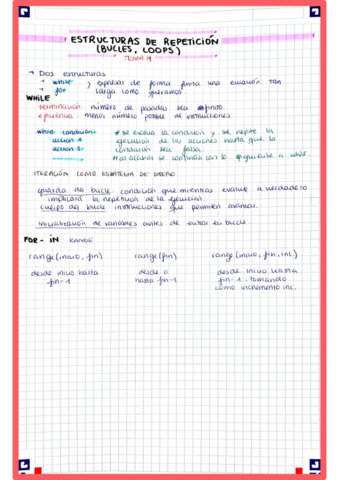 ESTRUCTURAS DE REPETICIÓN
(BUCLES, LOOPS)
TEMA 4
→ Dos estructuras
→ while
→ for
expresar de forma finita una ejecución tan
larga como queramos
WHILE
terminación número de pasadas sea finito.
eficiencia menor número posible de instrucciones.
while condicion:
accion 1
accion 2
# se evalua la condición y se repite la
ejecución de las acciones hasta que la
condición sea falsa.
# al acabar se continua con lo siguiente a while.
ITERACIÓN COMO ESTRATEGIA DE DISEÑO
guarda de bucle condición que mientras evalue a verdadero
implicará la repetición de la ejecución.
cuerpo del bucle instrucciones que permiten avanzar.
inicialización de variables antes de entrar en bucle
FOR - IN RANGE
range(inicio, fin)
desde inicio hasta
fin-1
range(fin)
desde 0
hasta fin-1
range(inicio, fin, inc)
desde inicio hasta
fin-1, tomando
como incremento inc.